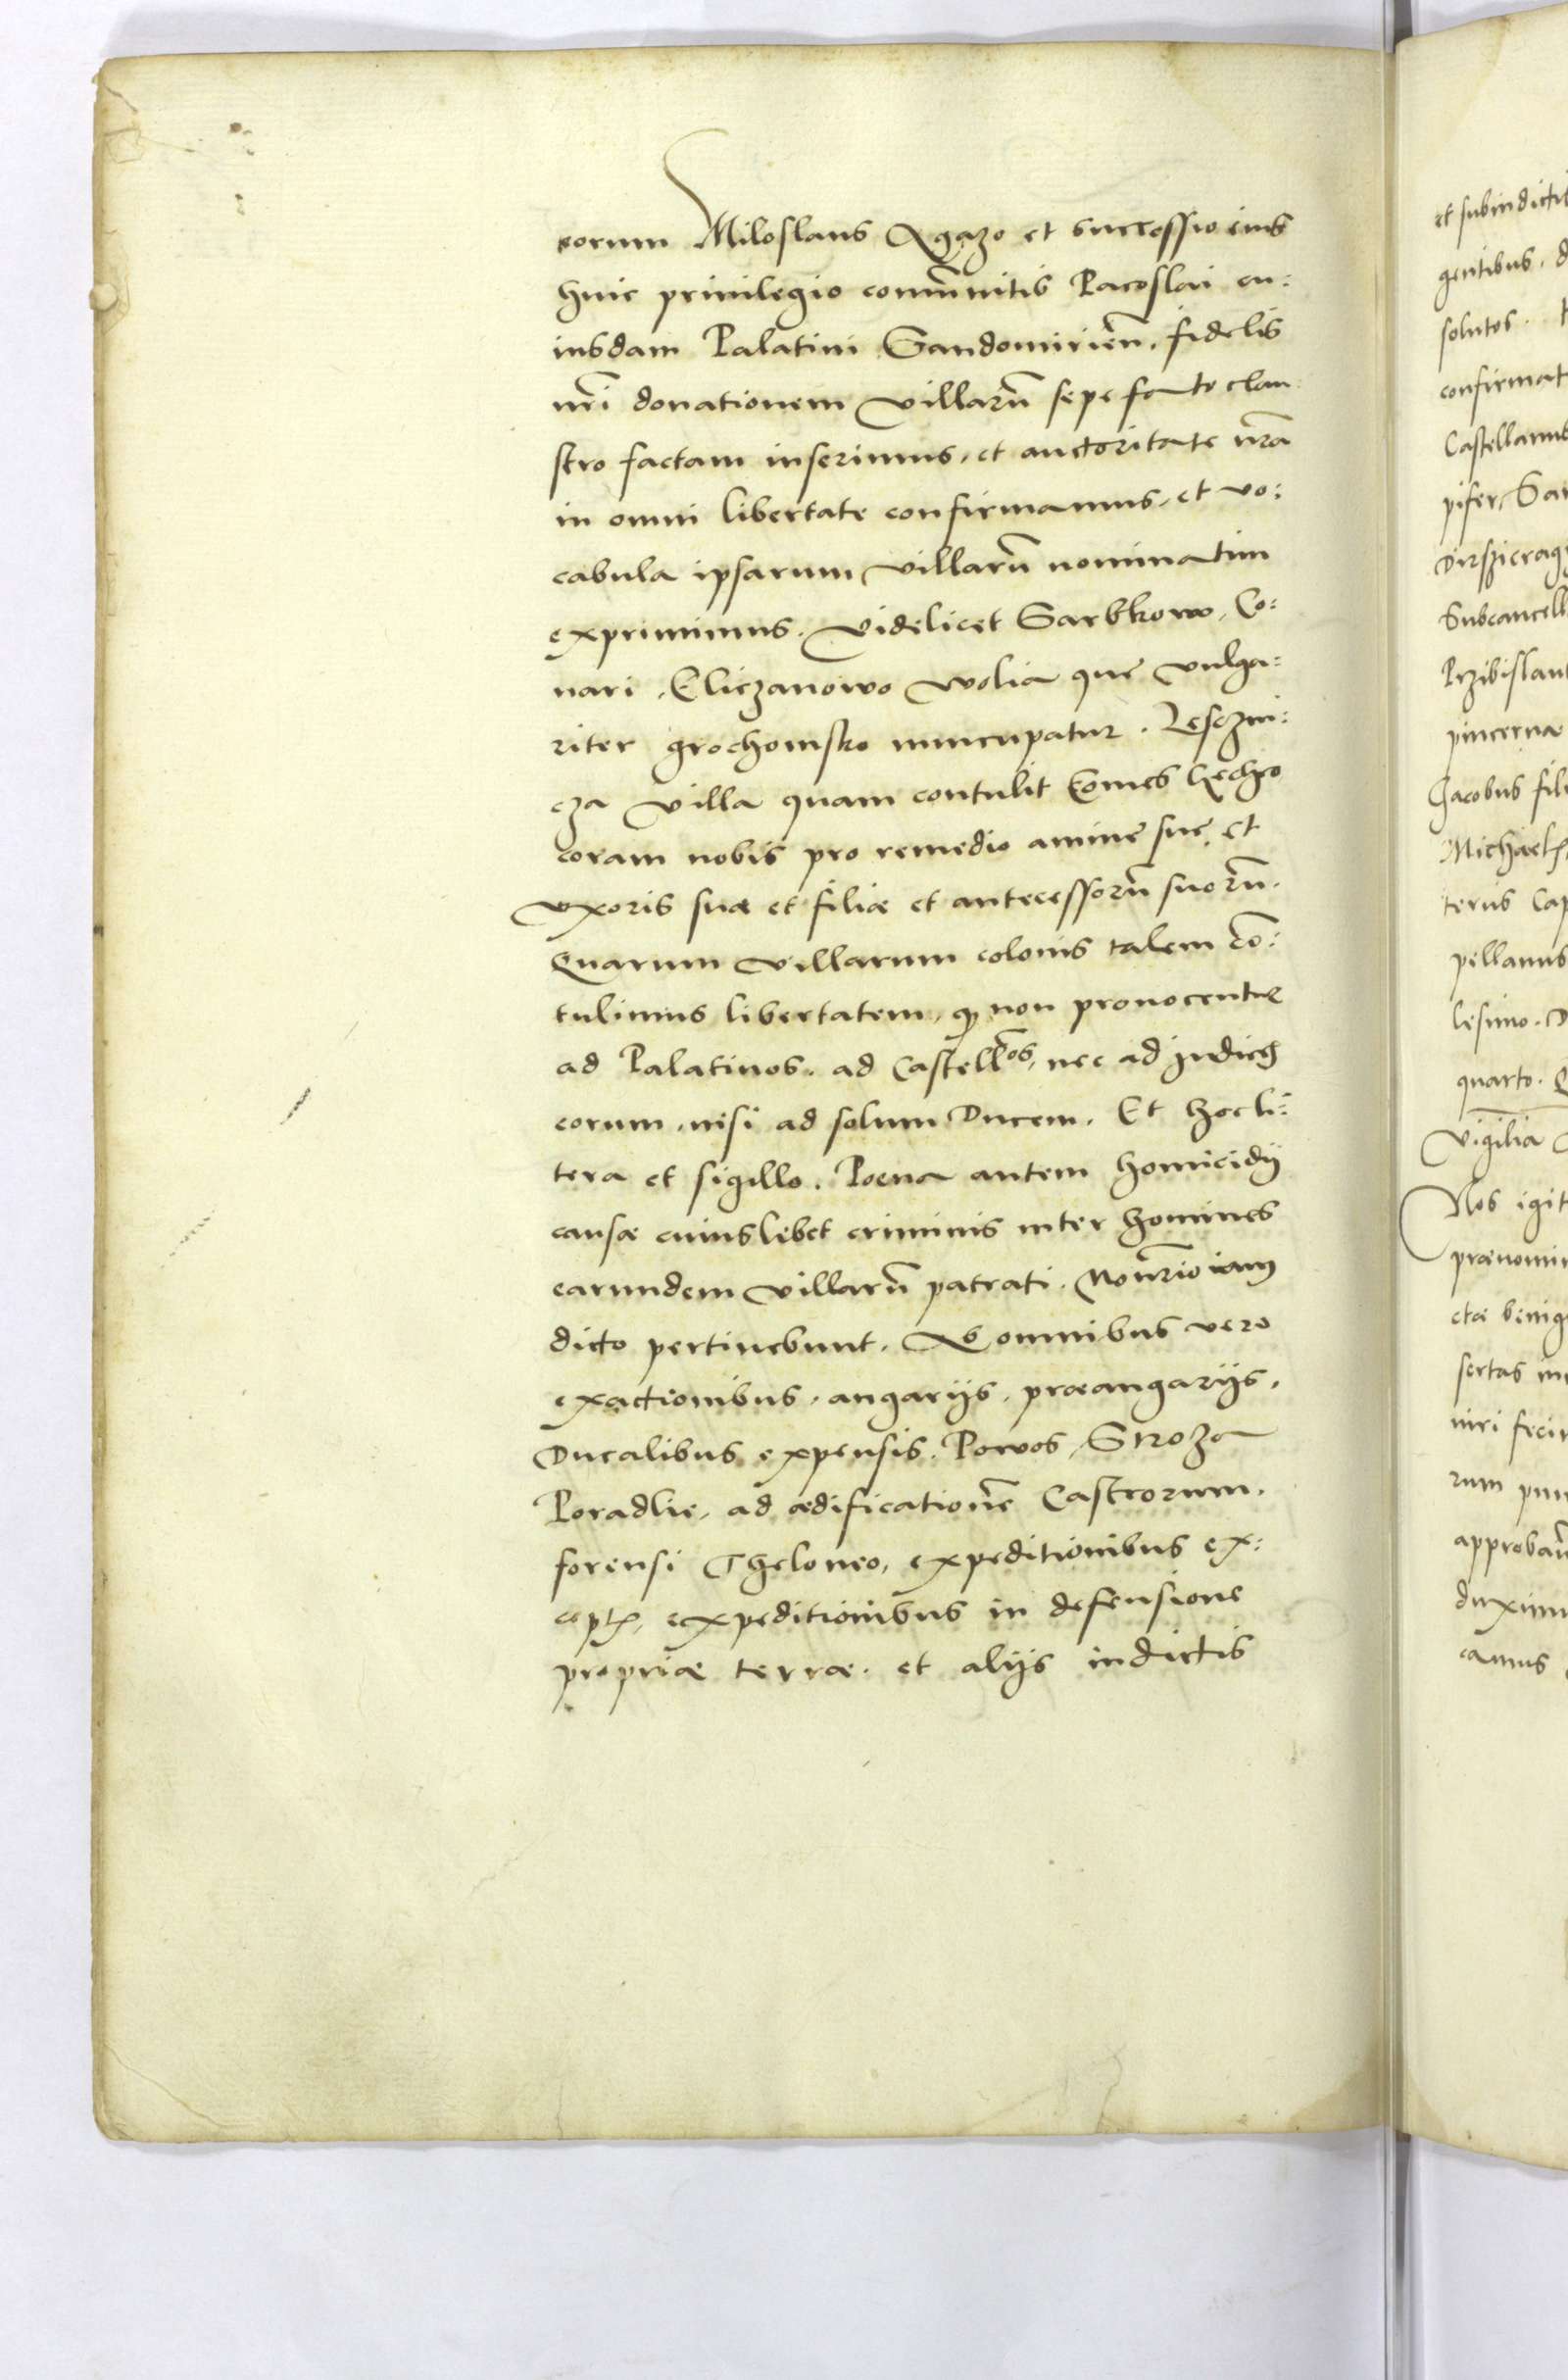 eorum Miloslaus Agazo et successio eius
huic priuilegio com̃unitis Pacoslai cu:
iusdam Palatini Sandomirieñ. fidelis
nr̃i donationem villarũ sepe fato clau
stro factam inserimus, et auctoritate nr̃a
in omni libertate confirmamus, et vo:
cabula ipsarum villarũ nominatim
exprimimus. Videlicet Sarbkow, Co:
nari, Eliczanowo wolia que vulga:
riter grochowsko nuncupatur. Lesczni:
cza villa quam contulit Comes Lechco
coram nobis pro remedio anime sue, et
vxoris suæ et filiæ et antecessorũ suorũ.
Quarum villarum colonis talem cõ:
tulimus libertatem, q non prouocentur
ad Palatinos, ad Castellos, nec ad Iudices
eorum, nisi ad solum Ducem. Et hoc li:
tera et sigillo. Poena autem homicidij
causæ cuiuslibet criminis inter homines
earundem villarũ patrati, iam
dicto pertinebunt. Ab omnibus vero
exactionibus, angarijs, præangarijs,
Ducalibus expensis, Powos, Stroza
Poradlie, ad ædificationẽ Castrorum,
forensi Theloneo, expeditionibus ex:
cept, expeditionibus in defensione
propriæ terræ, et alijs indictis
et subindicti
gentibus, d
solutos.
confirmat
Castellanus
pifer, San
Dirszicrag
Subcancell
Przibislaus
pincernæ
Jacobus fil
Michael
terius Cap
pellanus
lesimo. D
quarto. Q
Vigilia
Nos igit
prænomin
ctæ benig
sertas in
niri feci
rum pun
approbañ
duximu
camus